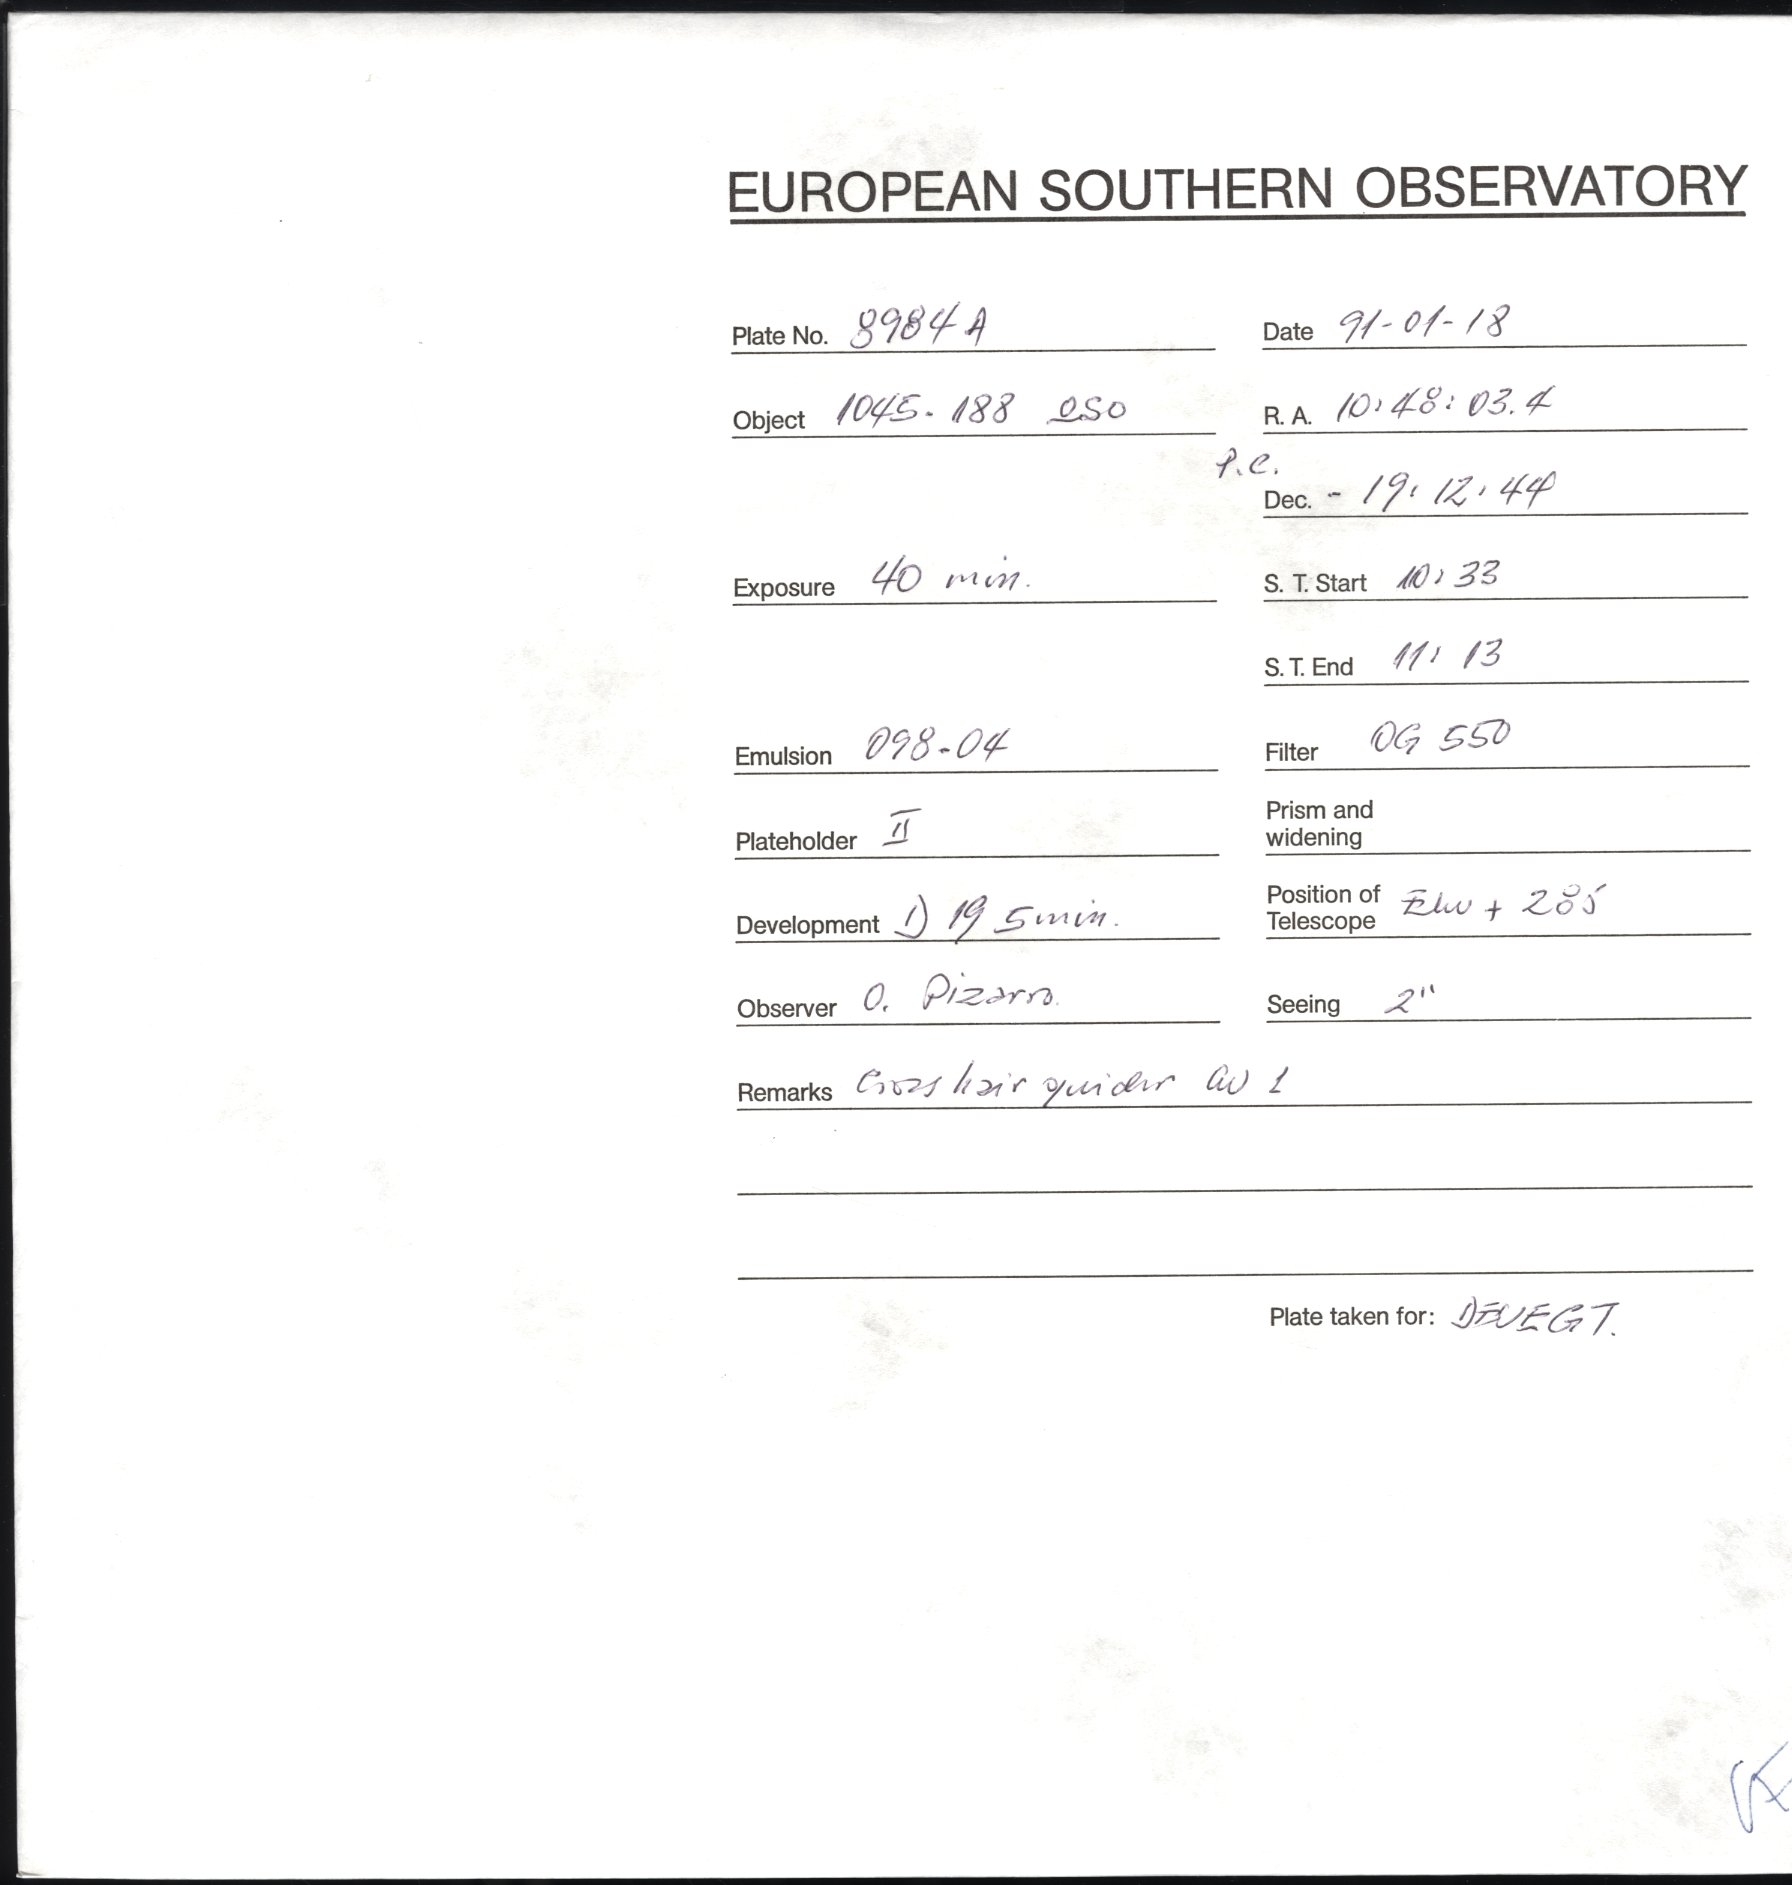 EUROPEAN SOUTHERN OBSERVATORY
Plate No. 8984 A Date 91-01-18
Object 1045-188 QSO R. A. 10:48:03.4
P.C.
Dec. - 19:12:44
Exposure 40 min. S. T. Start 10:33
S. T. End 11:13
Emulsion 098-04 Filter OG 550
Plateholder II Prism and
widening
Development 1) 19 5 min. Position of
Telescope + 285
Observer O. Pizarro. Seeing 2"
Remarks Cross hair guider 1
Plate taken for: DEVEGT.